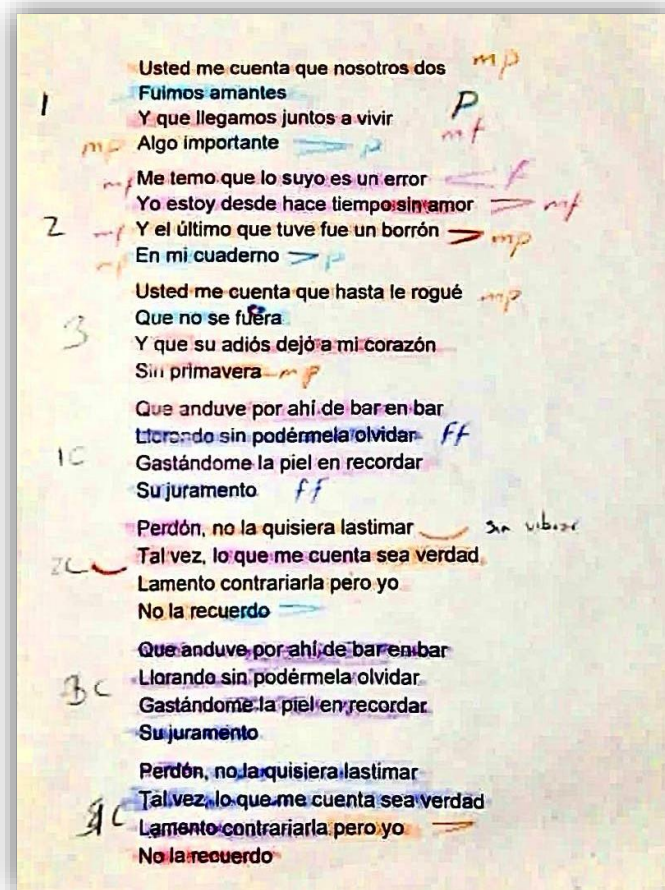 Usted me cuenta que nosotros dos mp
Fuimos amantes
1
Y que llegamos juntos a vivir P
mf
mp Algo importante > p
mf Me temo que lo suyo es un error < f
Yo estoy desde hace tiempo sin amor > mf
2 mf Y el último que tuve fue un borrón > mp
mp En mi cuaderno > p
Usted me cuenta que hasta le rogué mp
Que no se fuera
3 Y que su adiós dejó a mi corazón
Sin primavera mp
Que anduve por ahí de bar en bar
Llorando sin podérmela olvidar ff
1C Gastándome la piel en recordar
Su juramento ff
Perdón, no la quisiera lastimar sin vibrar
2C Tal vez, lo que me cuenta sea verdad
Lamento contrariarla pero yo
No la recuerdo >
Que anduve por ahí de bar en bar
Llorando sin podérmela olvidar
3C Gastándome la piel en recordar
Su juramento
Perdón, no la quisiera lastimar
Tal vez, lo que me cuenta sea verdad
4C Lamento contrariarla pero yo >
No la recuerdo